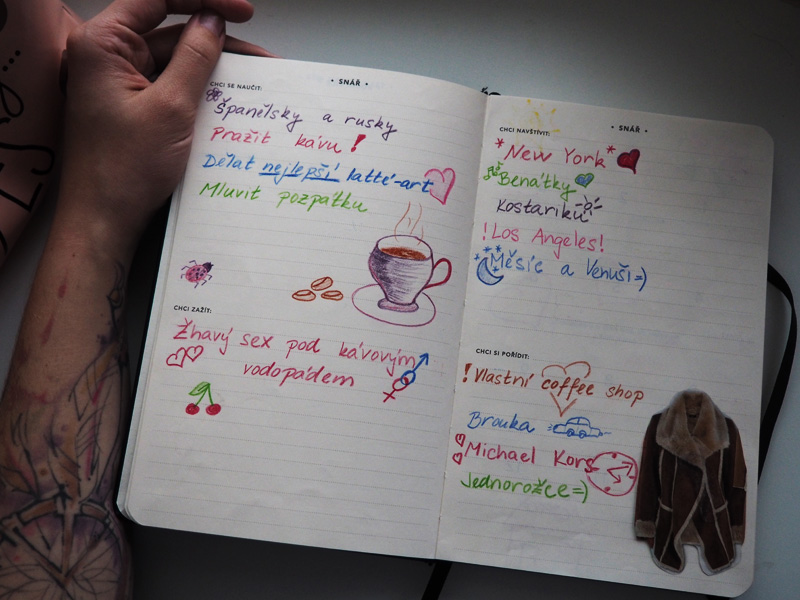 • SNÁŘ •
CHCI SE NAUČIT:
Španělsky a rusky
Pražit kávu!
Dělat nejlepší latté-art
Mluvit pozpátku
CHCI ZAŽÍT:
Žhavý sex pod kávovým
vodopádem
• SNÁŘ •
CHCI NAVŠTÍVIT:
*New York*
Benátky
Kostariku
!Los Angeles!
Měsíc a Venuši=)
CHCI SI POŘÍDIT:
!Vlastní coffee shop
Brouka
Michael Kors
Jednorožce=)